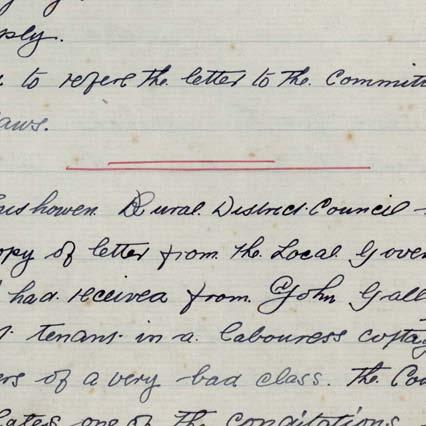 ply.
to refere the letter to the Committ
aws.
ishowen Rural District Council -
opy of letter from the Local Gover
had received from John Gall
tenant in a labourers cottag
ers of a very bad class. The Cou
lates one of the conditions